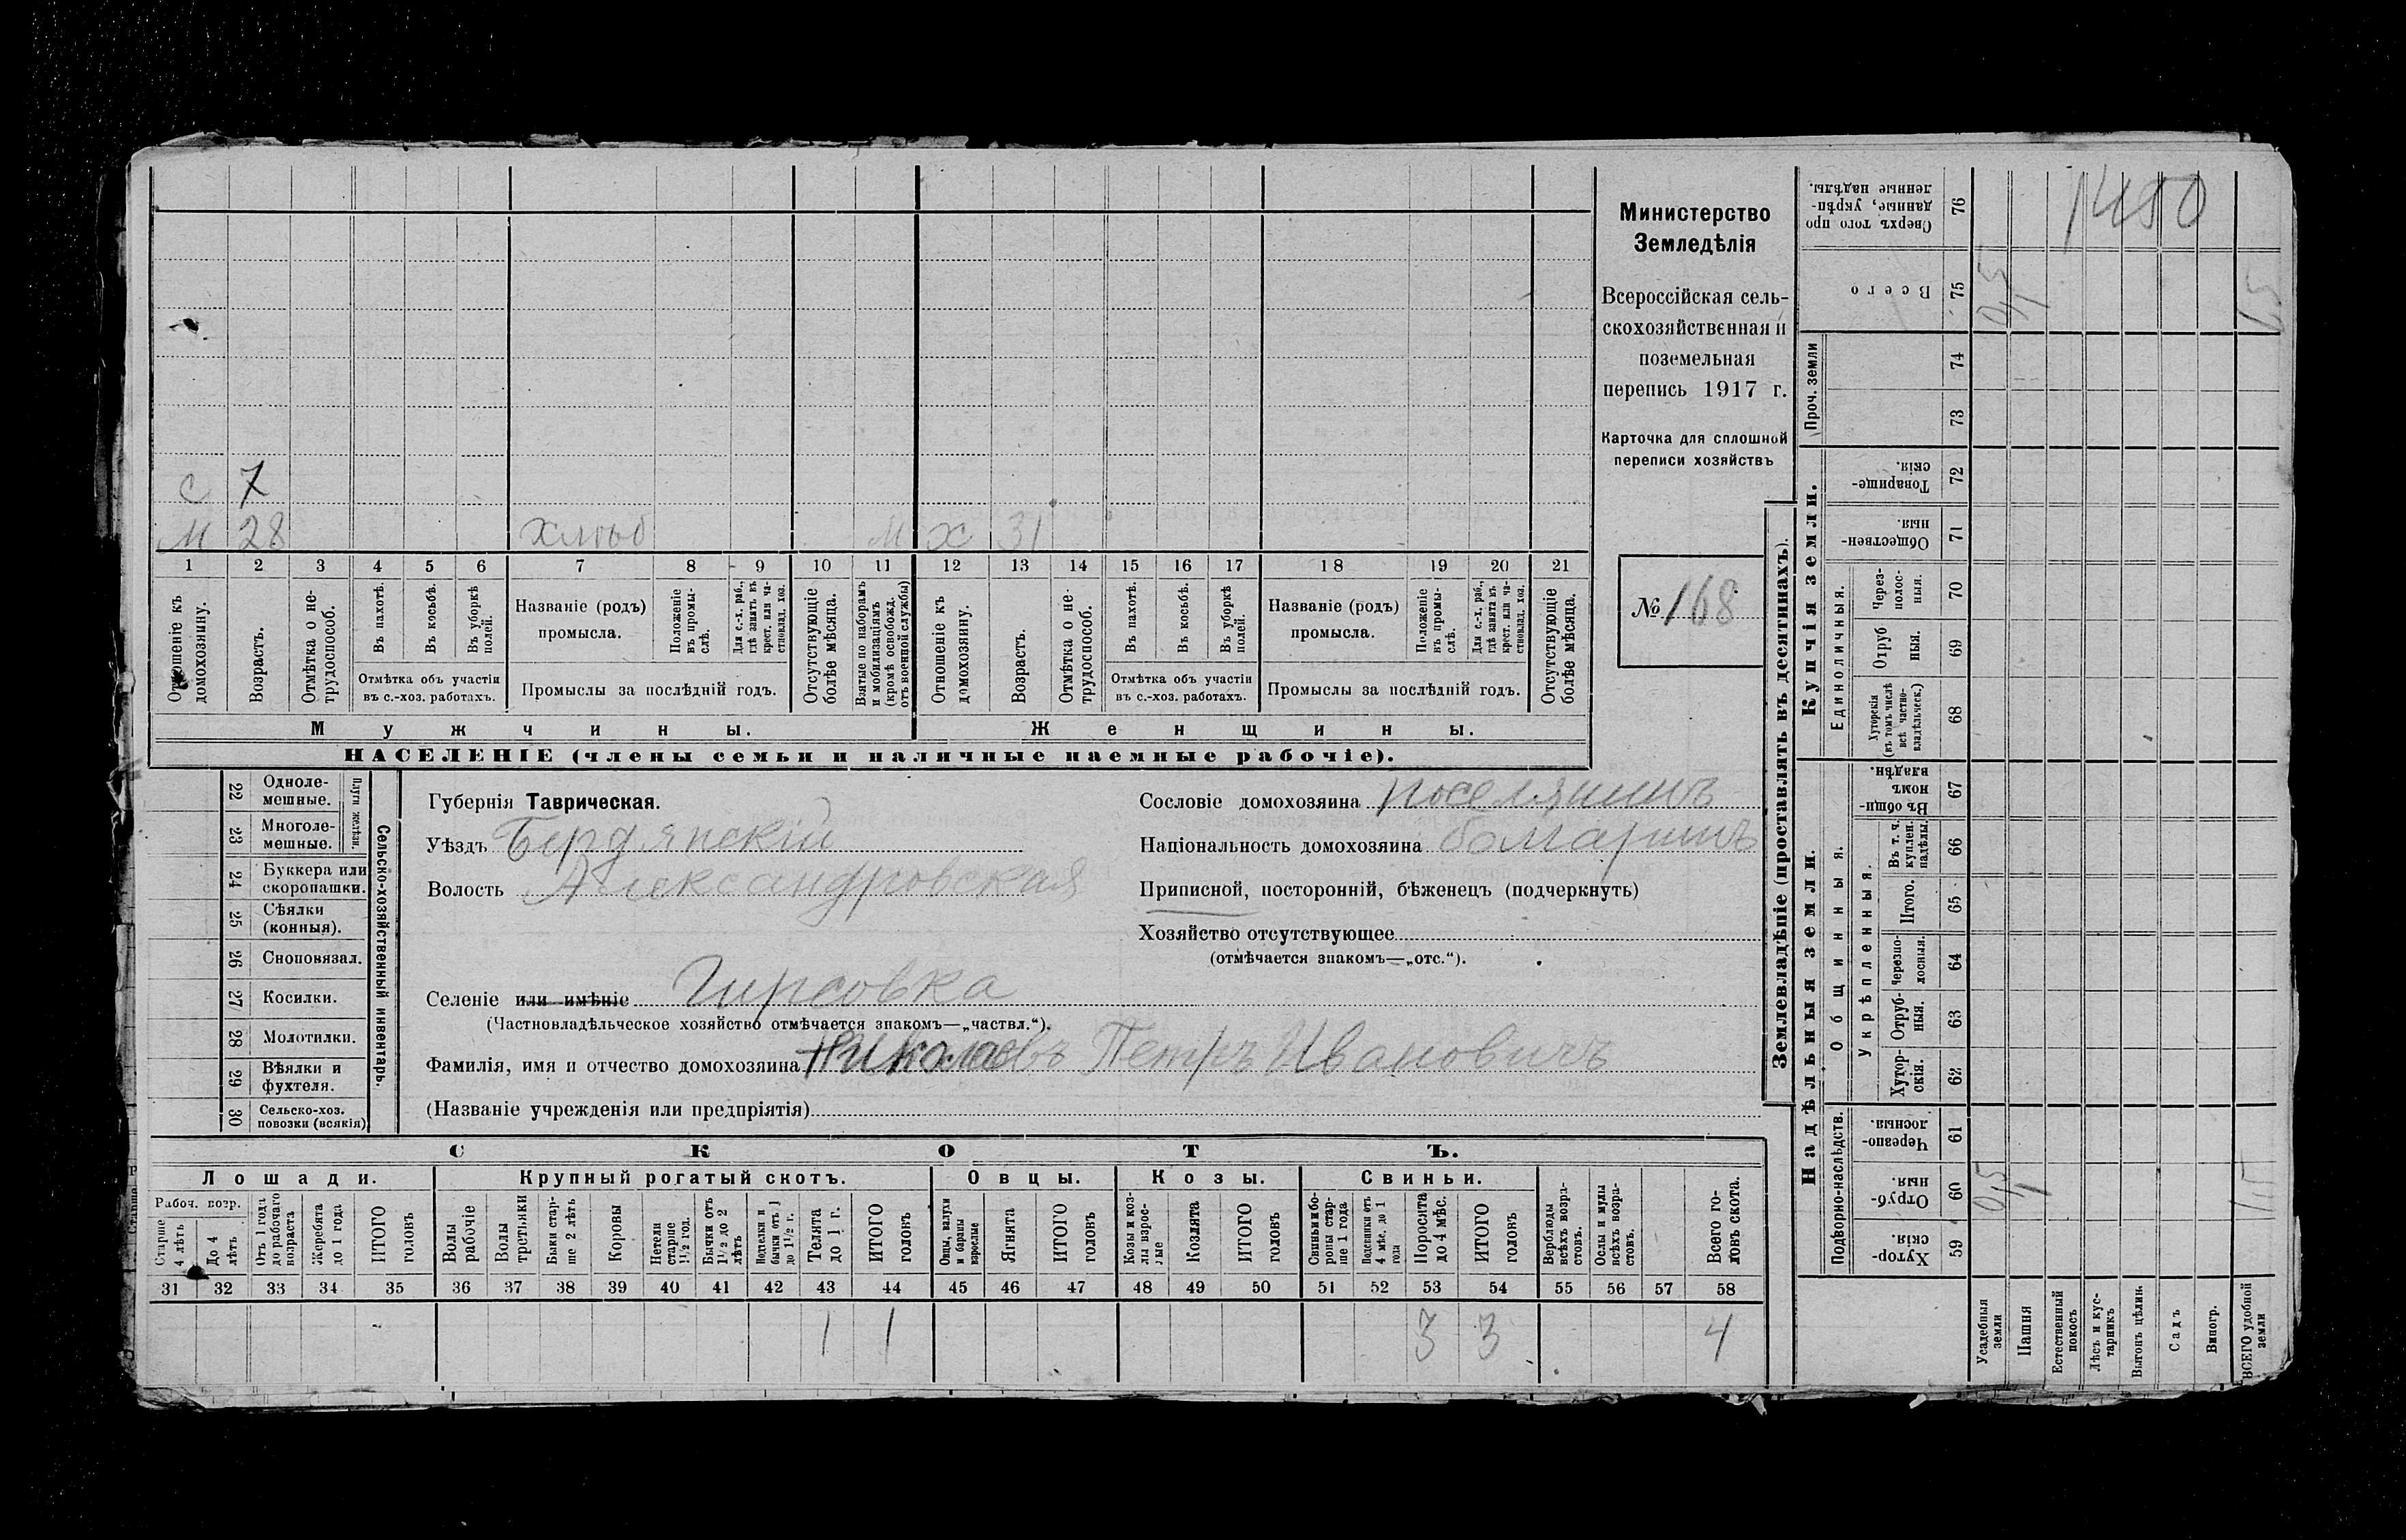 с 7
м 28 м х 31
1 2 3 4 5 6 7 8 9 10 11 12 13 14 15 16 17 18 19 20 21
Отношеніе къ домохозяину.
Возрастъ.
Отмѣтка о нетрудоспособ.
Въ пахотѣ.
Въ косьбѣ.
Въ уборкѣ полей.
Отмѣтка объ участіи
въ с.-хоз. работахъ.
Названіе (родъ)
промысла.
Положеніе въ промыслѣ.
Для с.-х. раб., гдѣ занятъ въ крест. или частновлад. хоз.
Промыслы за послѣдній годъ.
Отсутствующіе болѣе мѣсяца.
Взятые по наборамъ и мобилизаціямъ (кромѣ освобожд. отъ военной службы)
Отношеніе къ домохозяину.
Возрастъ.
Отмѣтка о нетрудоспособ.
Въ пахотѣ.
Въ косьбѣ.
Въ уборкѣ полей.
Отмѣтка объ участіи
въ с.-хоз. работахъ.
Названіе (родъ)
промысла.
Положеніе въ промыслѣ.
Для с.-х. раб., гдѣ занята въ крест. или частновлад. хоз.
Промыслы за послѣдній годъ.
Отсутствующіе болѣе мѣсяца.
Мужчины. Женщины.
НАСЕЛЕНІЕ (члены семьи и наличные наемные рабочіе).
Министерство
Земледѣлія
Всероссійская сель-
скохозяйственная и
поземельная
перепись 1917 г.
Карточка для сплошной
переписи хозяйствъ
№ 168
22 Одноле-
мешные.
23 Многоле-
мешные.
Плуги желѣзн.
24 Буккера или
скоропашки.
25 Сѣялки
(конныя).
26 Сноповязал.
27 Косилки.
28 Молотилки.
29 Вѣялки и
фухтеля.
30 Сельско-хоз.
повозки (всякія)
Сельско-хозяйственный инвентарь.
Губернія Таврическая.
Уѣздъ Бердянскій
Волость Александровская
Селеніе или имѣніе Гирсовка
(Частновладѣльческое хозяйство отмѣчается знакомъ—„частвл.“).
Фамилія, имя и отчество домохозяина Николаевъ Петръ Ивановичъ
(Названіе учрежденія или предпріятія)
Сословіе домохозяина поселянинъ
Національность домохозяина болгаринъ
Приписной, посторонній, бѣженецъ (подчеркнуть)
Хозяйство отсутствующее
(отмѣчается знакомъ—„отс.“).
СКОТЪ.
Лошади. Крупный рогатый скотъ. Овцы. Козы. Свиньи.
Рабоч. возр.
Старше 4 лѣтъ
До 4 лѣтъ
Отъ 1 года до рабочаго возраста
Жеребята до 1 года
ИТОГО головъ
Волы рабочіе
Волы третьяки
Быки старше 2 лѣтъ
Коровы
Нетели старше 1½ год.
Бычки отъ 1½ до 2 лѣтъ
Подтелки и бычки отъ 1 до 1½ г.
Телята до 1 г.
ИТОГО головъ
Овцы, валухи и бараны взрослые
Ягнята
ИТОГО головъ
Козы и козлы взрослые
Козлята
ИТОГО головъ
Свиньи и боровы старше 1 года
Подсвинки отъ 4 мѣс. до 1 года
Поросята до 4 мѣс.
ИТОГО головъ
Верблюды всѣхъ возрастовъ.
Ослы и мулы всѣхъ возрастовъ.
Всего головъ скота.
31 32 33 34 35 36 37 38 39 40 41 42 43 44 45 46 47 48 49 50 51 52 53 54 55 56 57 58
1 1 3 3 4
Землевладѣніе (проставлять въ десятинахъ).
Купчія земли.
Надѣльныя земли.
1450
Сверхъ того проданные, укрѣпленные надѣлы. 76
Всего 75 0,5 1 1,5
Проч. земли 74 73
Товарищескія. 72
Общественныя. 71
Единоличныя.
Черезполосныя. 70
Отрубныя. 69
Хуторскія (въ томъ числѣ всѣ частновладѣльческ.) 68
Общинныя.
Въ общинномъ владѣн. 67
Укрѣпленныя.
Въ т. ч. куплен. надѣлы. 66
Итого. 65
Черезполосныя. 64
Отрубныя. 63
Хуторскія. 62
Подворно-наслѣдств.
Черезполосныя. 61
Отрубныя. 60 0,5 1 1,5
Хуторскія. 59
Усадебныя земли
Пашня
Естественный покосъ
Лѣсъ и кустарникъ
Выгонъ цѣлин.
Садъ
Виногр.
ВСЕГО удобной земли